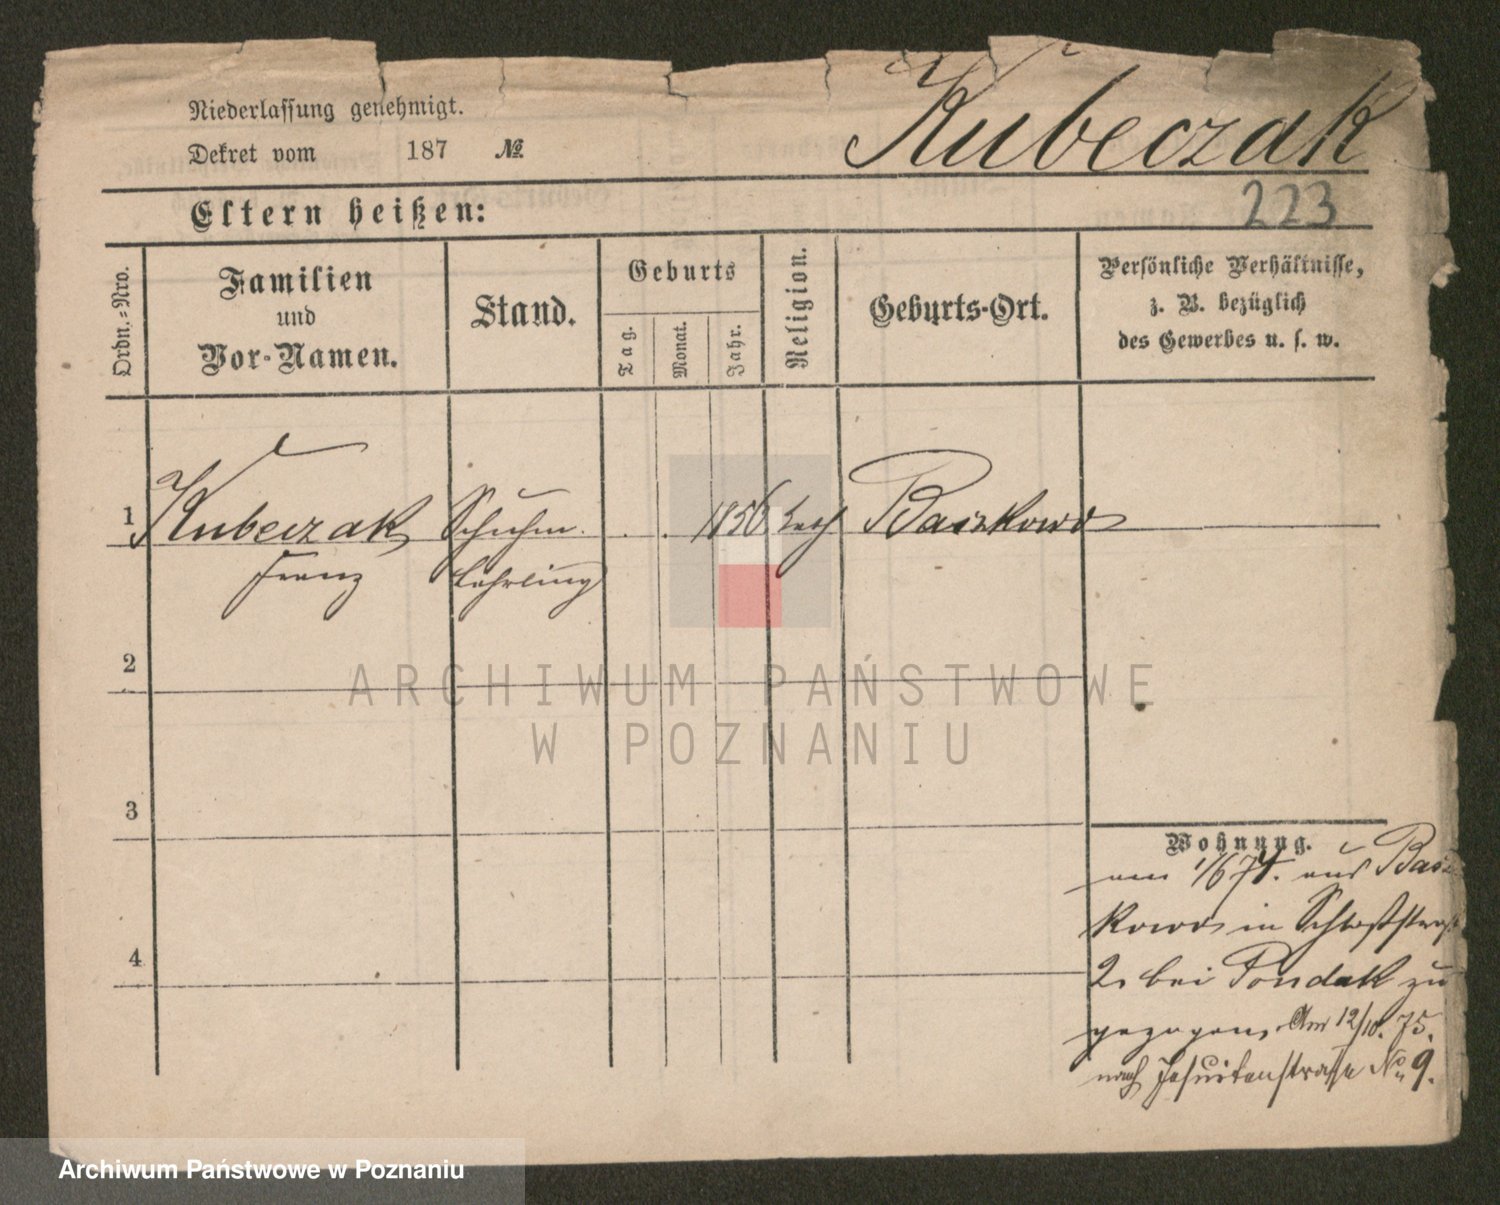 Niederlassung genehmigt.
Dekret vom 187 №
Kubeczak
223
Eltern heißen:
Ordn.-Nro.
Familien
und
Vor-Namen.
Stand.
Geburts
Tag.
Monat.
Jahr.
Religion.
Geburts-Ort.
Persönliche Verhältnisse,
z. B. bezüglich
des Gewerbes u. s. w.
1 Kubeczak Schuhm. . . 1856 kath. Baszkowo
Franz Lehrling
2
3
4
Wohnung.
am 1/6 74. aus Basz
kowo in Schloßstraß
2. bei Pondak zu
gezogen. Am 12/10. 75.
nach Jesuitenstraße No. 9.
ARCHIWUM PAŃSTWOWE
W POZNANIU
Archiwum Państwowe w Poznaniu